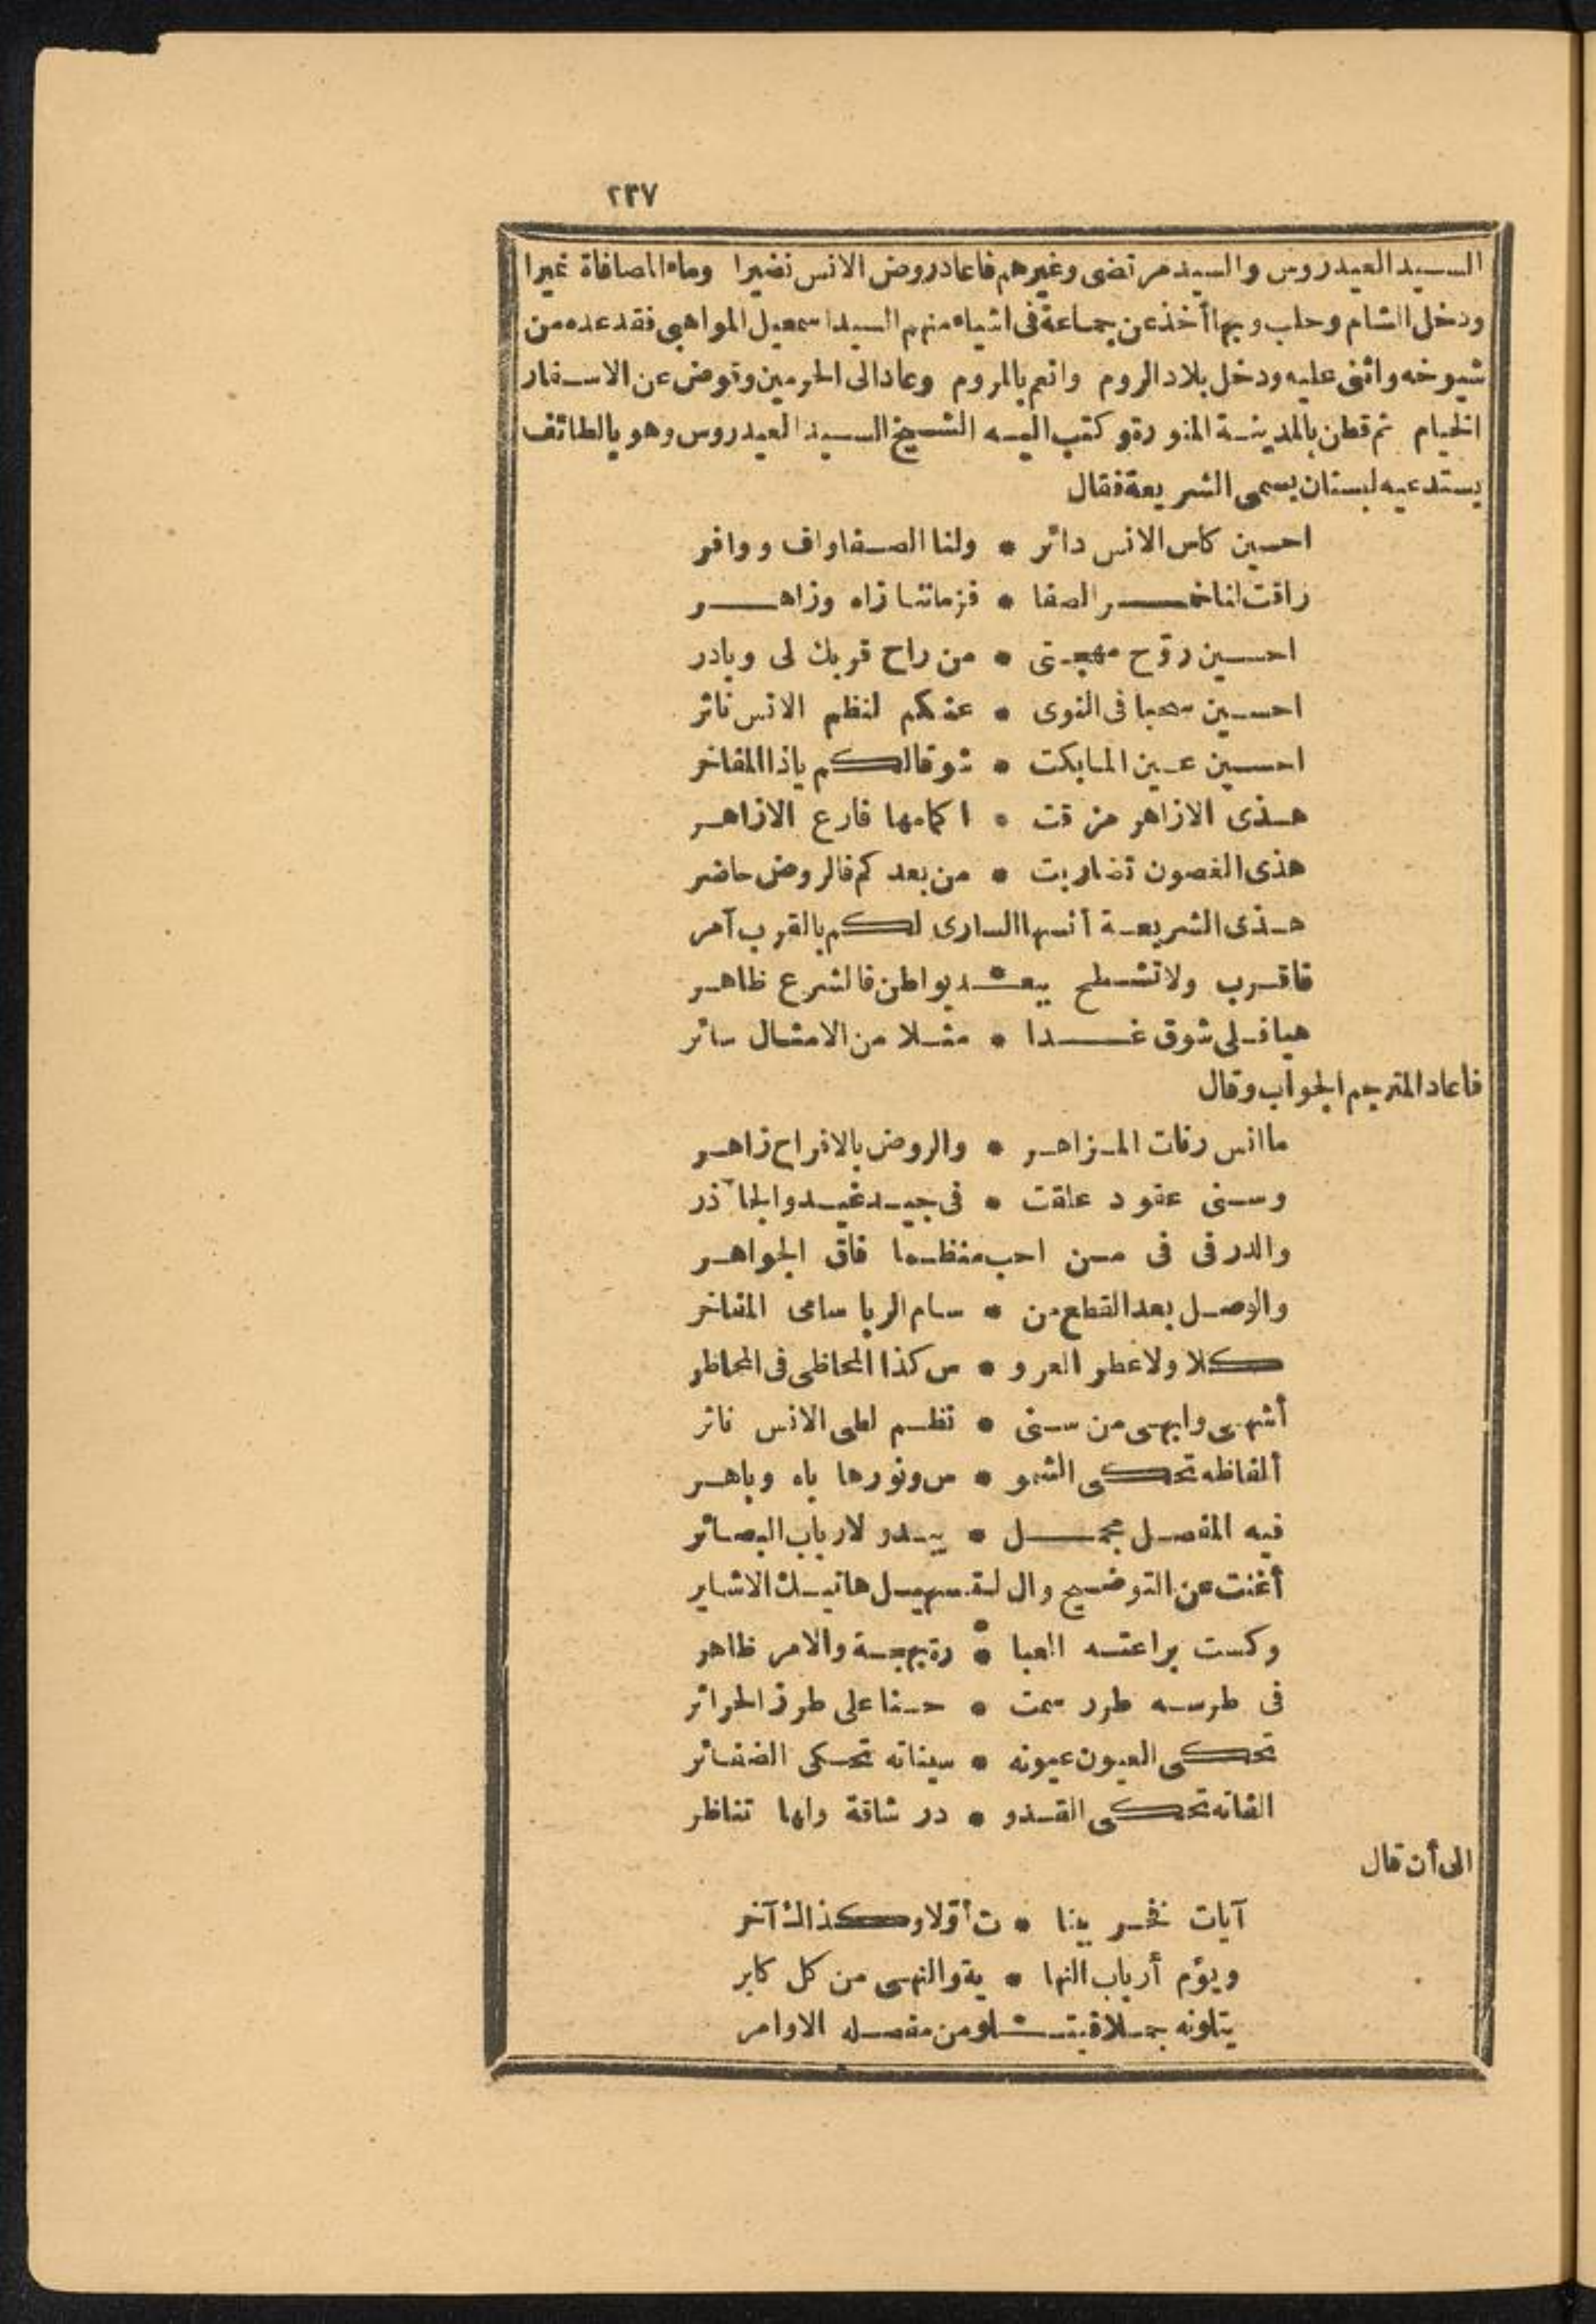 ٢٣٧
السيد العيدروس والسيد مرتضى وغيرهم فاعاد روض الانس نضيرا وماء المصافاة نميرا
ودخل الشام وحلب وبها أخذ عن جماعة فى اشياء منهم السيد اسمعيل المواهبى فقد عده من
شيوخه واثنى عليه ودخل بلاد الروم وانعم بالمروم وعاد الى الحرمين وقوض عن الاسفار
الخيام ثم قطن بالمدينة المنورة وكتب اليه الشيخ السيد العيدروس وهو بالطائف
يستدعيه لبستان يسمى الشريعة فقال
احسين كاس الانس دائر • ولنا الصفا واف ووافر
راقت لنا خمر الصفا • فزماننا زاه وزاهر
احسين روّح مهجتى • من راح قربك لى وبادر
احسين صحبا فى النوى • عنكم لنظم الانس ناثر
احسين عين لما بكت • شوقا لكم ياذا المفاخر
هذى الازاهر مزقت • اكمامها فارع الازاهر
هذى الغصون تضاربت • من بعدكم فالروض حاضر
هذى الشريعة أنسها السارى لكم بالقرب آمر
فاقرب ولا تشطح ببعد بواطن فالشرع ظاهر
هيا فلى شوق غدا • مثلا من الامثال سائر
فأعاد المترجم الجواب وقال
ما انس رنات المزاهر • والروض بالافراح زاهر
وسنى عقود علقت • فى جيد غيد والجآذر
والدر فى فى من احب منظما فاق الجواهر
والوصل بعد القطع من • سام الربا سامى المفاخر
كلا ولا عطر العرو • س كذا المحاظى فى المحاظر
أشهى وابهى من سنى • نظم لطى الانس ناثر
ألفاظه تحكى الشمو • س ونورها باه وباهر
فيه المفصل مجمل • يبدو لارباب البصائر
أغنت عن التوضيح وال تسهيل هاتيك الاشاير
وكست براعته العبا • رة بهجة والامر ظاهر
فى طرسه طرر سمت • حسنا على طرز الحرائر
تحكى العيون عيونه • سيناته تحكى الضفائر
الفاته تحكى القدو • د رشاقة ولها تناظر
الى أن قال
آيات فخر بينا • ت أوّلا وكذاك آخر
ويؤم أرباب النها • ية والنهى من كل كابر
يتلونه جملا فيتلو من مفصله الاوامر